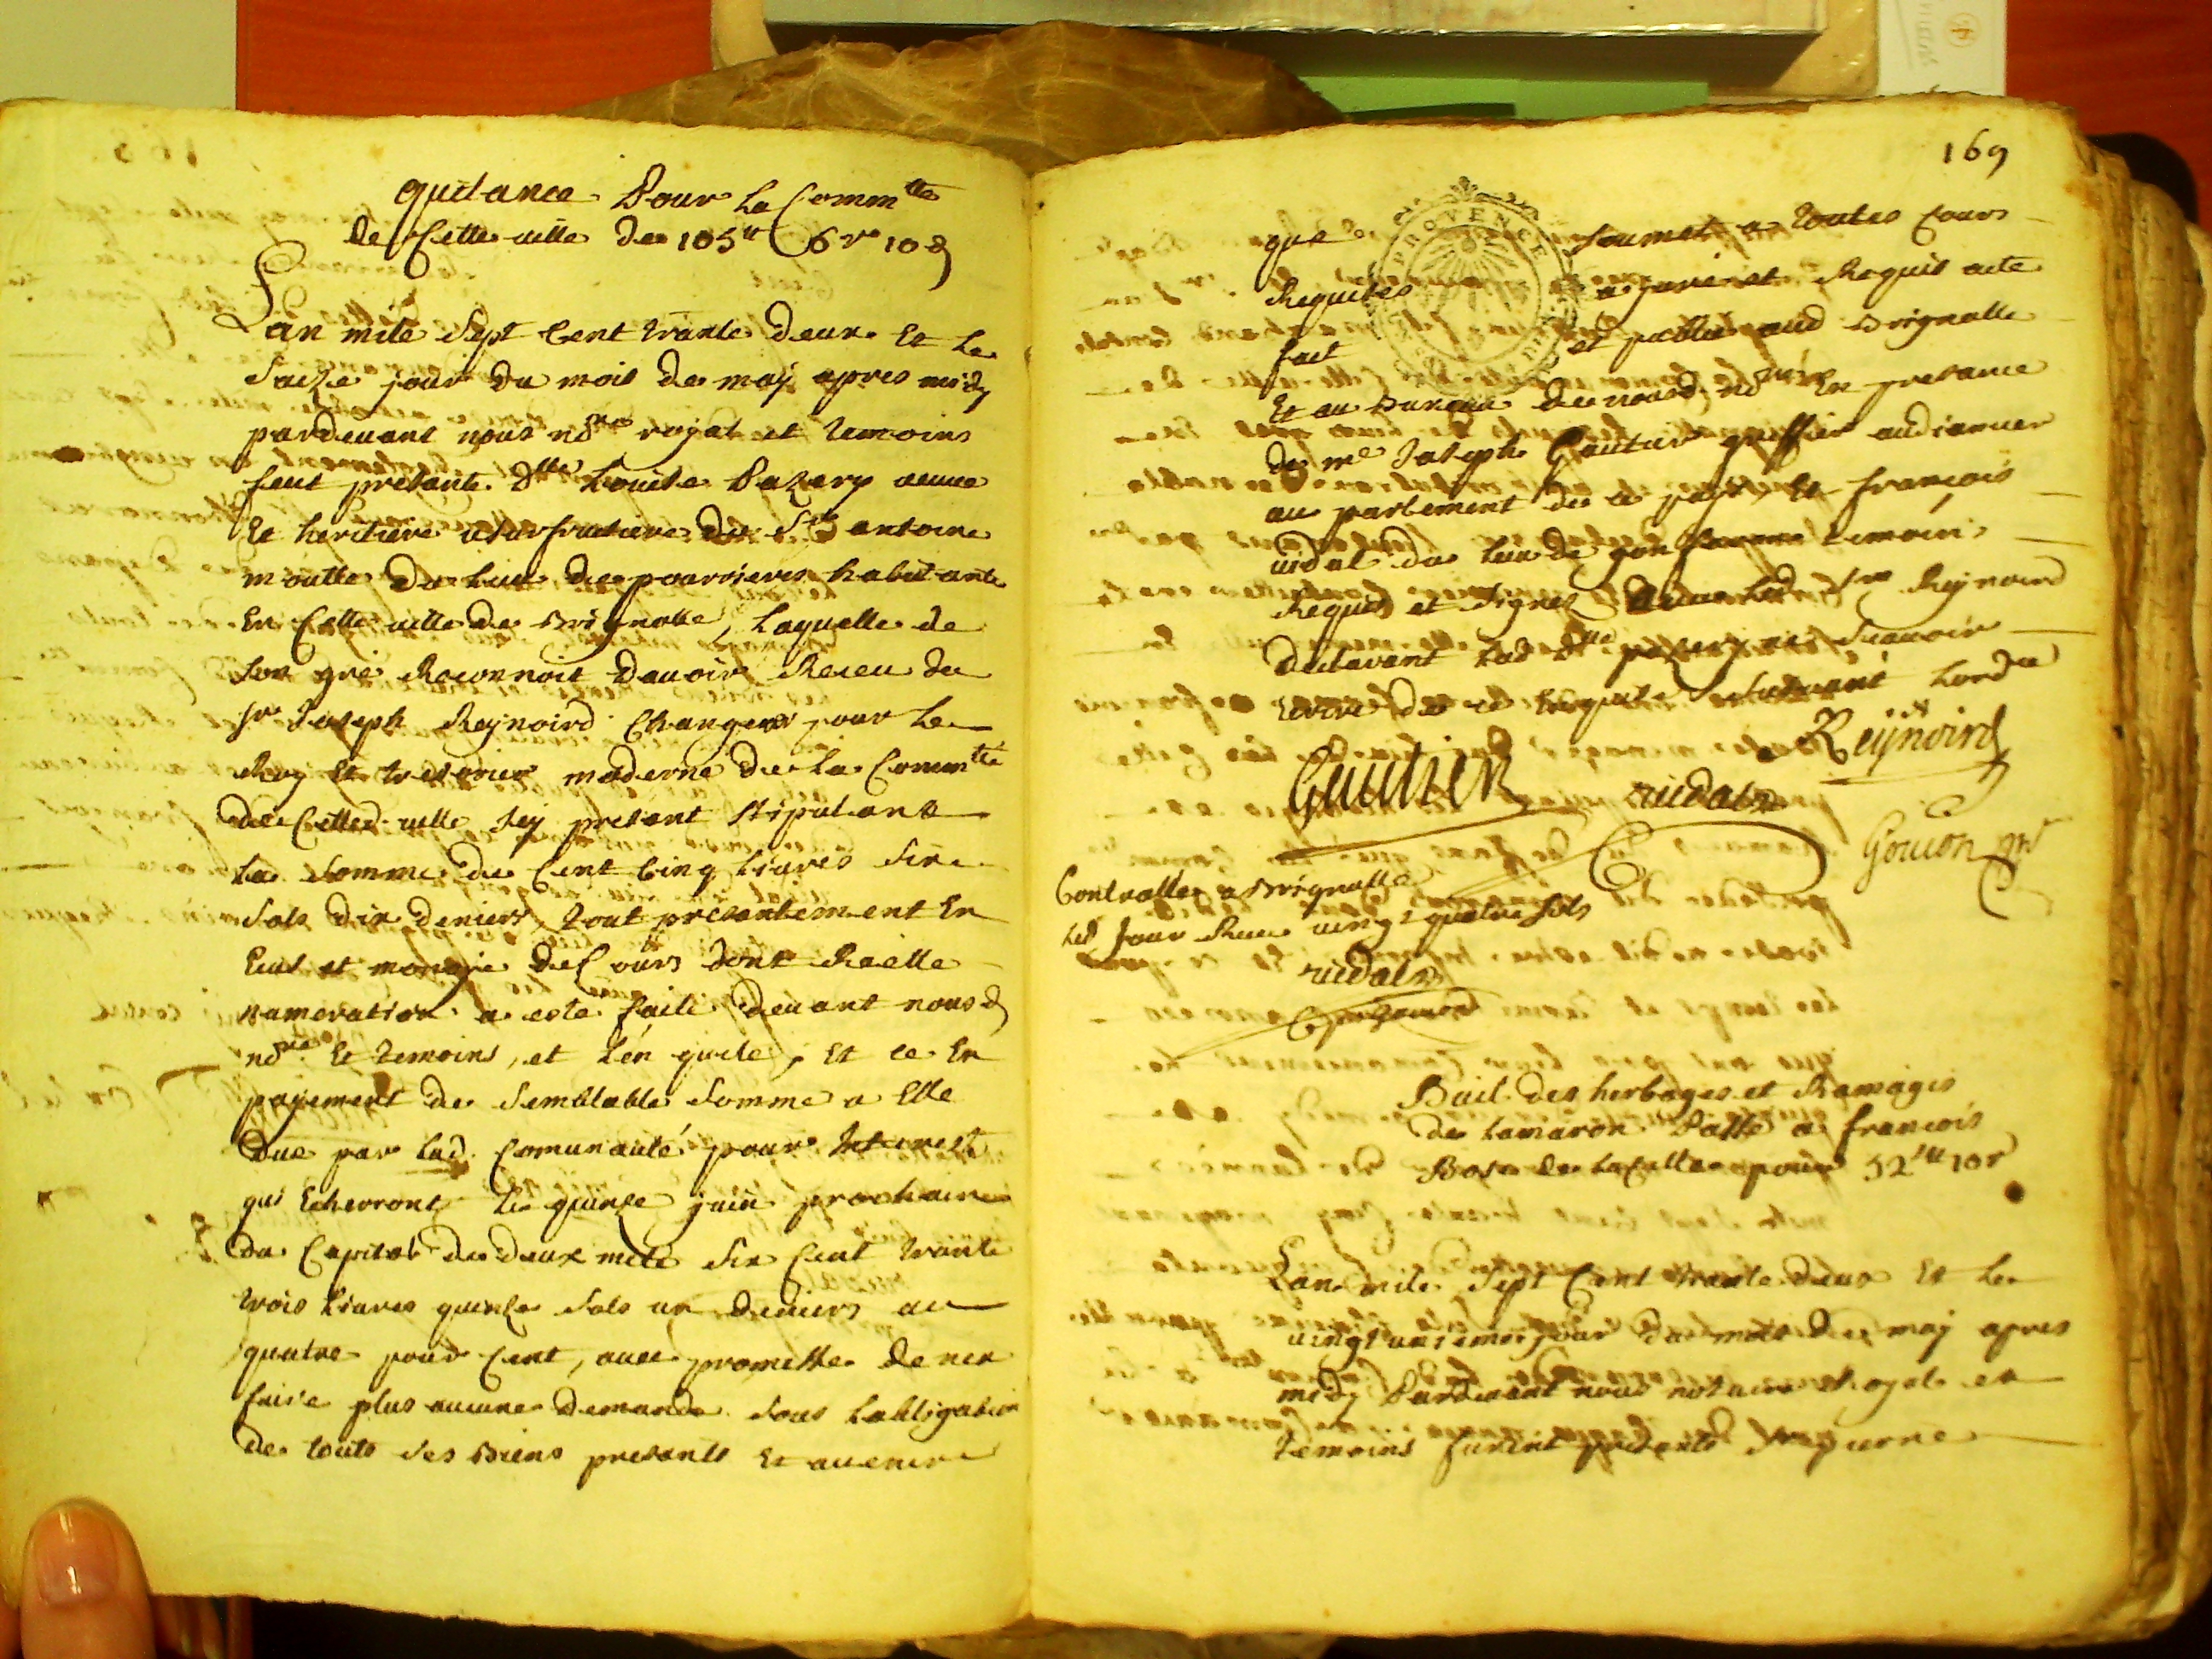 quitance Pour la Comm^tte
de Cette ville de 105^tt 6 s 10 d
Lan mile Sept Cent trante deux Et le
Saize jour du mois de maj apres midy
pardevant nous no^re royal et temoins
feut presante d^lle Louise Pazery veuve
Et heritiere usufructuere du S^r antoine
moutte du Lieu de pourrieres habitante
En Cette ville de Brignolle, Laquelle de
son gré Reconnoit Davoir Receu du
S^r Joseph Reynoird Changeur pour Le
Roy Et tresorier moderne de La Comm^tté
de Cetted. ville Icy present stipulant
La Somme de Cent Cinq Livres Six
Sols dix deniers, tout presantement En
Ecus et monoye de Cours dont Reelle
numeration a este faite devant nousd
no^re Et temoins, et L'en quite, Et ce En
payement de Semblable Somme a Elle
Due par Lad. Comunauté pour Interest
qui Echerront le quinze juin prochain
du Capital de deux mile Six Cent trante
trois Livres quinze Sols un deniers au
quatre pour Cent, avec promesse de nen
faire plus aucune demande sous Lobligation
de touts ses Biens presants Et avenir
169
que Soumet a toutes Cours
PROVENCE
Requises a juré et Requis acte
fait et publié aud Brignolle
Et au Bureau de nousd. no^re En presance
de m^e Joseph Gautier greffier audiancier
au parlement de ce pays Et françois
vidal du Lieu de temoins
Requis et signés avec Led S^r Reynoird
declarant Lad d^lle pazery ne Scavoir
Ecrire de ce Enquise suivant Lord^ce
Reijnoird
Gautier vidal
Goujon n^re
Controllé a Brignolle
Led Jour Receu vingt quatre sols
vidal
Bail des herbages et Ramages
de Lamaron Passé a francois
Bosc de La Celle pour 52^tt 10 s
Lan mile Sept Cent trante deux Et le
vingt unieme jour du mois de maj apres
midy Pardevant nous notaire Royal et
temoins furent presants S^r pierre